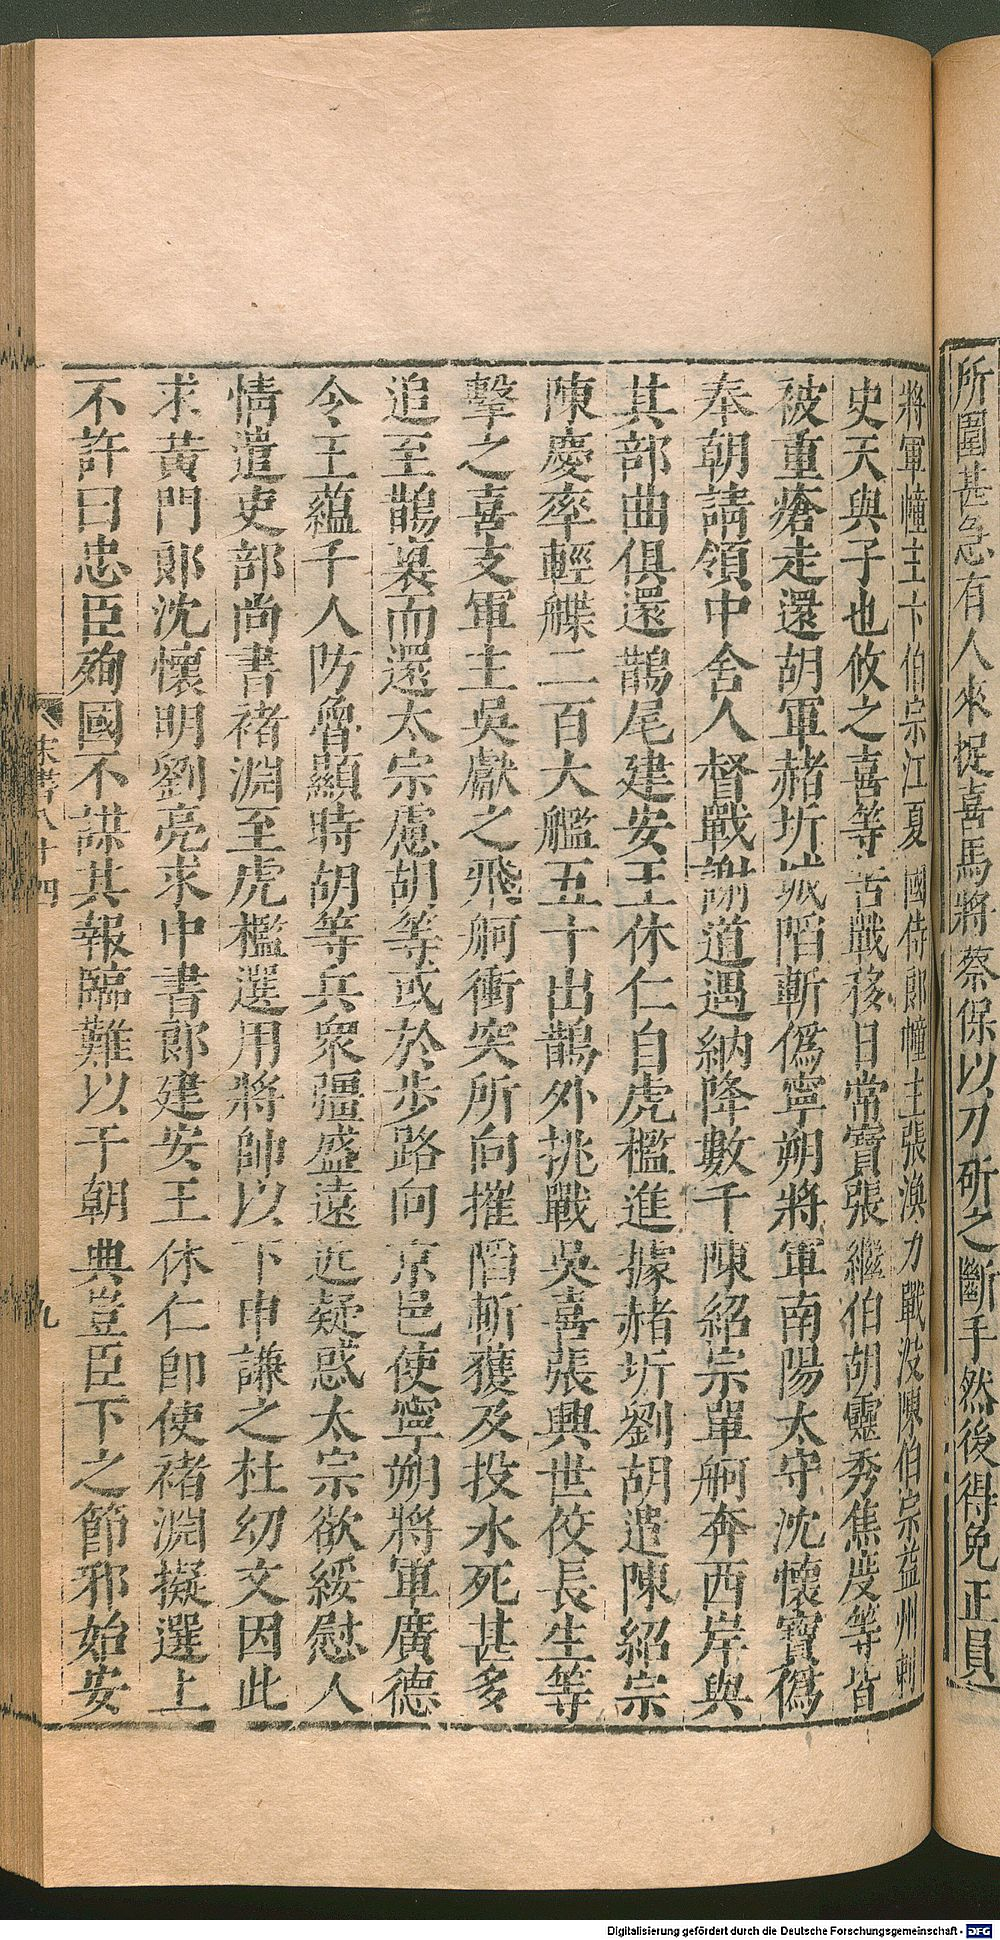 所圍甚急有人來捉喜馬將蔡保以刀斫之斷手然後得免正員
將軍幢主卞伯宗江夏國侍郎幢主張渙力戰沒陳伯宗益州刺
史天與子也攸之喜等苦戰移日常寶張繼伯胡靈秀焦度等皆
被重瘡走還胡軍赭圻城陷斬偽寧朔將軍南陽太守沈懷寶偽
奉朝請領中舍人督戰謝道遇納降數千陳紹宗單舸奔西岸與
其部曲俱還鵲尾建安王休仁自虎檻進據赭圻劉胡遣陳紹宗
陳慶率輕艓二百大艦五十出鵲外挑戰吳喜張興世佼長生等
擊之喜支軍主吳獻之飛舸衝突所向摧陷斬獲及投水死甚多
追至鵲裏而還太宗慮胡等或於步路向京邑使寧朔將軍廣德
令王蘊千人防魯顯時胡等兵眾彊盛遠近疑惑太宗欲綏慰人
情遣吏部尚書褚淵至虎檻選用將帥以下申謙之杜幼文因此
求黃門郎沈懷明劉亮求中書郎建安王休仁即使褚淵擬選上
不許曰忠臣殉國不謀其報臨難以干朝典豈臣下之節邪始安
宋書八十四
九
Digitalisierung gefördert durch die Deutsche Forschungsgemeinschaft - DFG